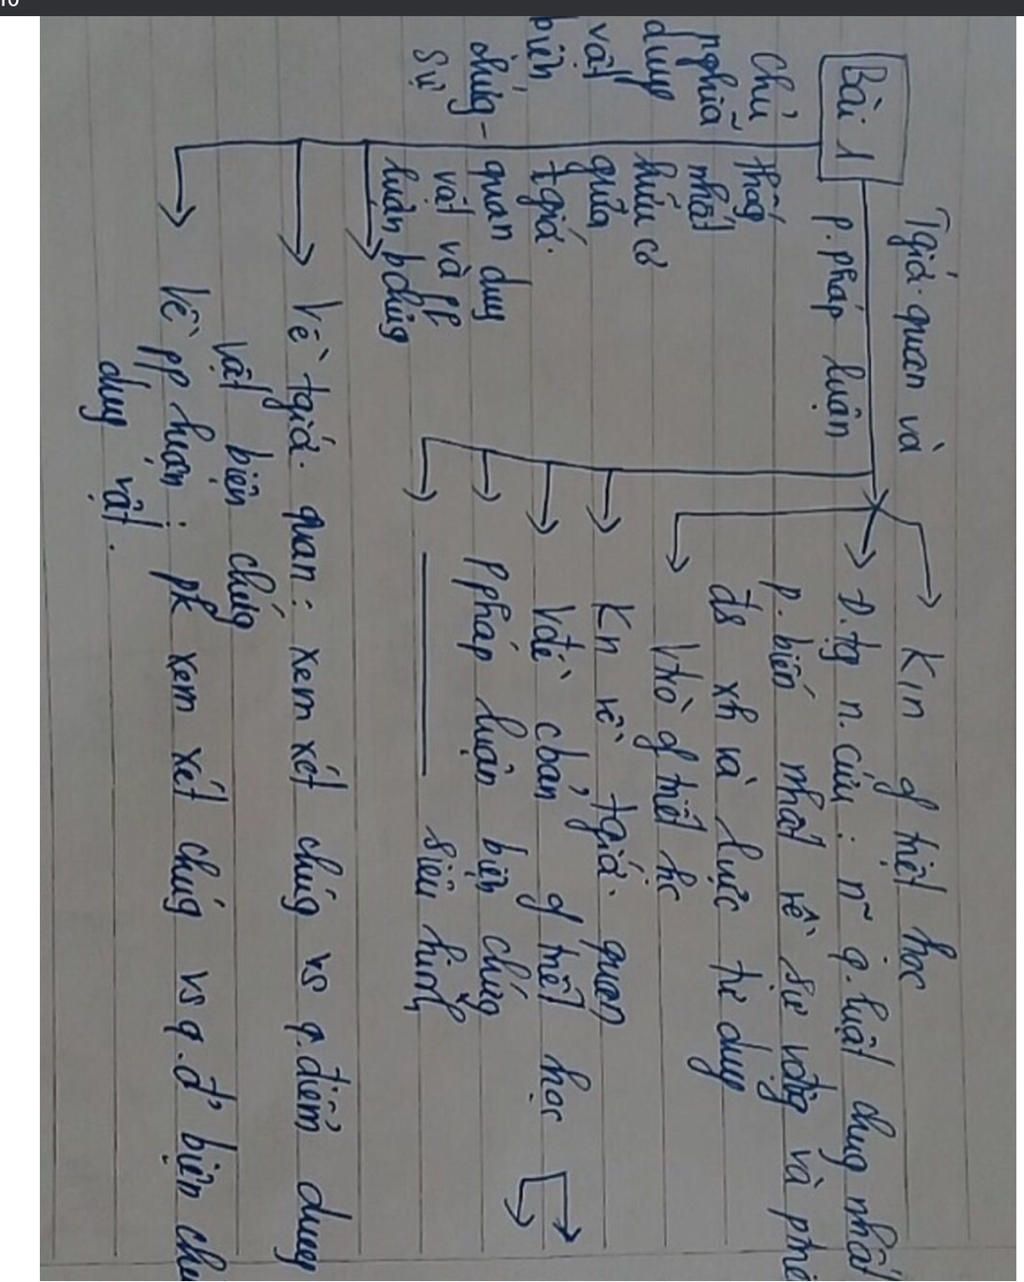 Bài 1
Tgiớ. quan và
p. pháp luận
K/n of triết học
Đ. tg n. cứu : n~ q. luật chug nhất
p. biến nhất về sự vđộg và ptr
đs xh và lực tư duy
Vtrò of triết hc
Kn về tgiớ. quan
Vđề cbản of triết học
Ppháp luận biện chứg
siêu hình
chủ nghĩa duy vật biện chứng -
Sự thốg nhất hữu cơ giữa tgiớ.
quan duy vật và pp luận b chứg
Về tgiớ. quan : xem xét chúg vs q. điểm duy
vật biện chứg
Về pp luận : pk xem xét chúg vs q. đ' biện chứ
duy vật.